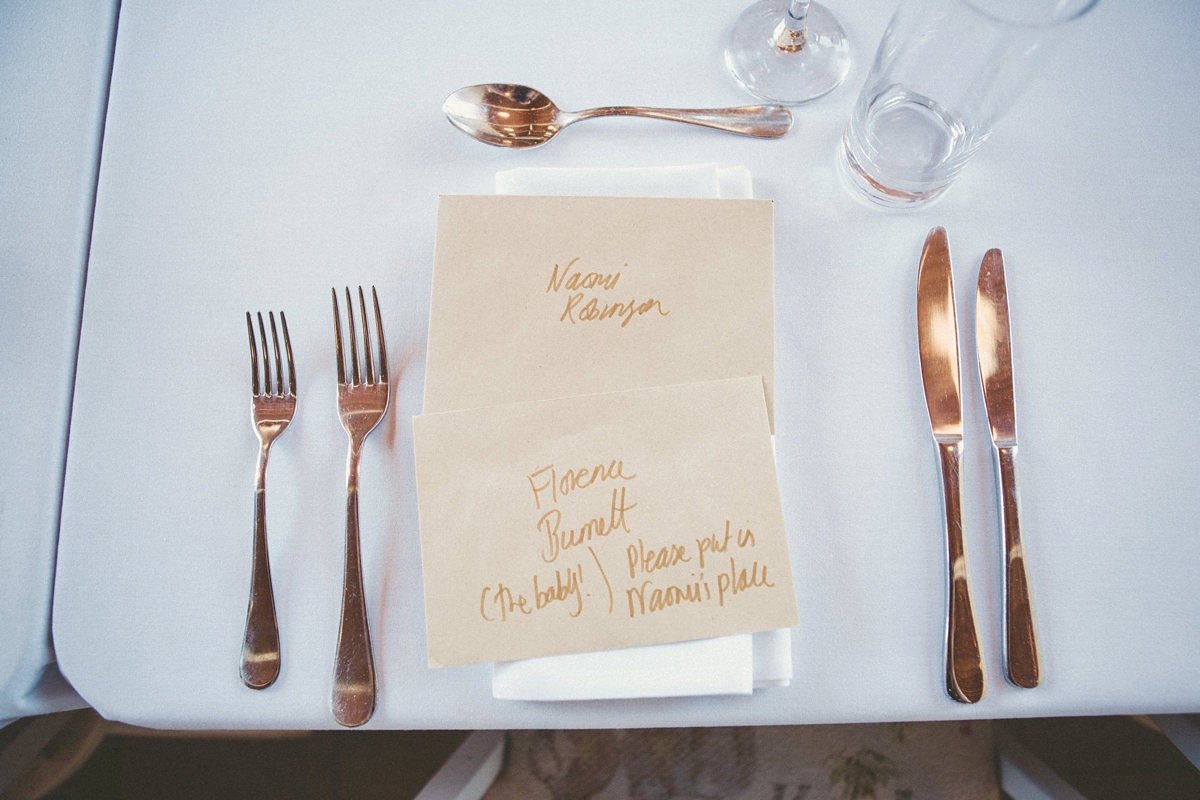 Naomi
Robinson
Florence
Burnett
(the baby!)
Please put in
Naomi's place